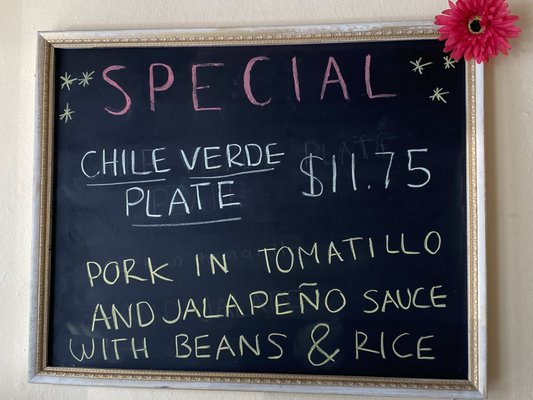 SPECIAL
CHILE VERDE
PLATE
$11.75
PORK IN TOMATILLO
AND JALAPEÑO SAUCE
WITH BEANS & RICE